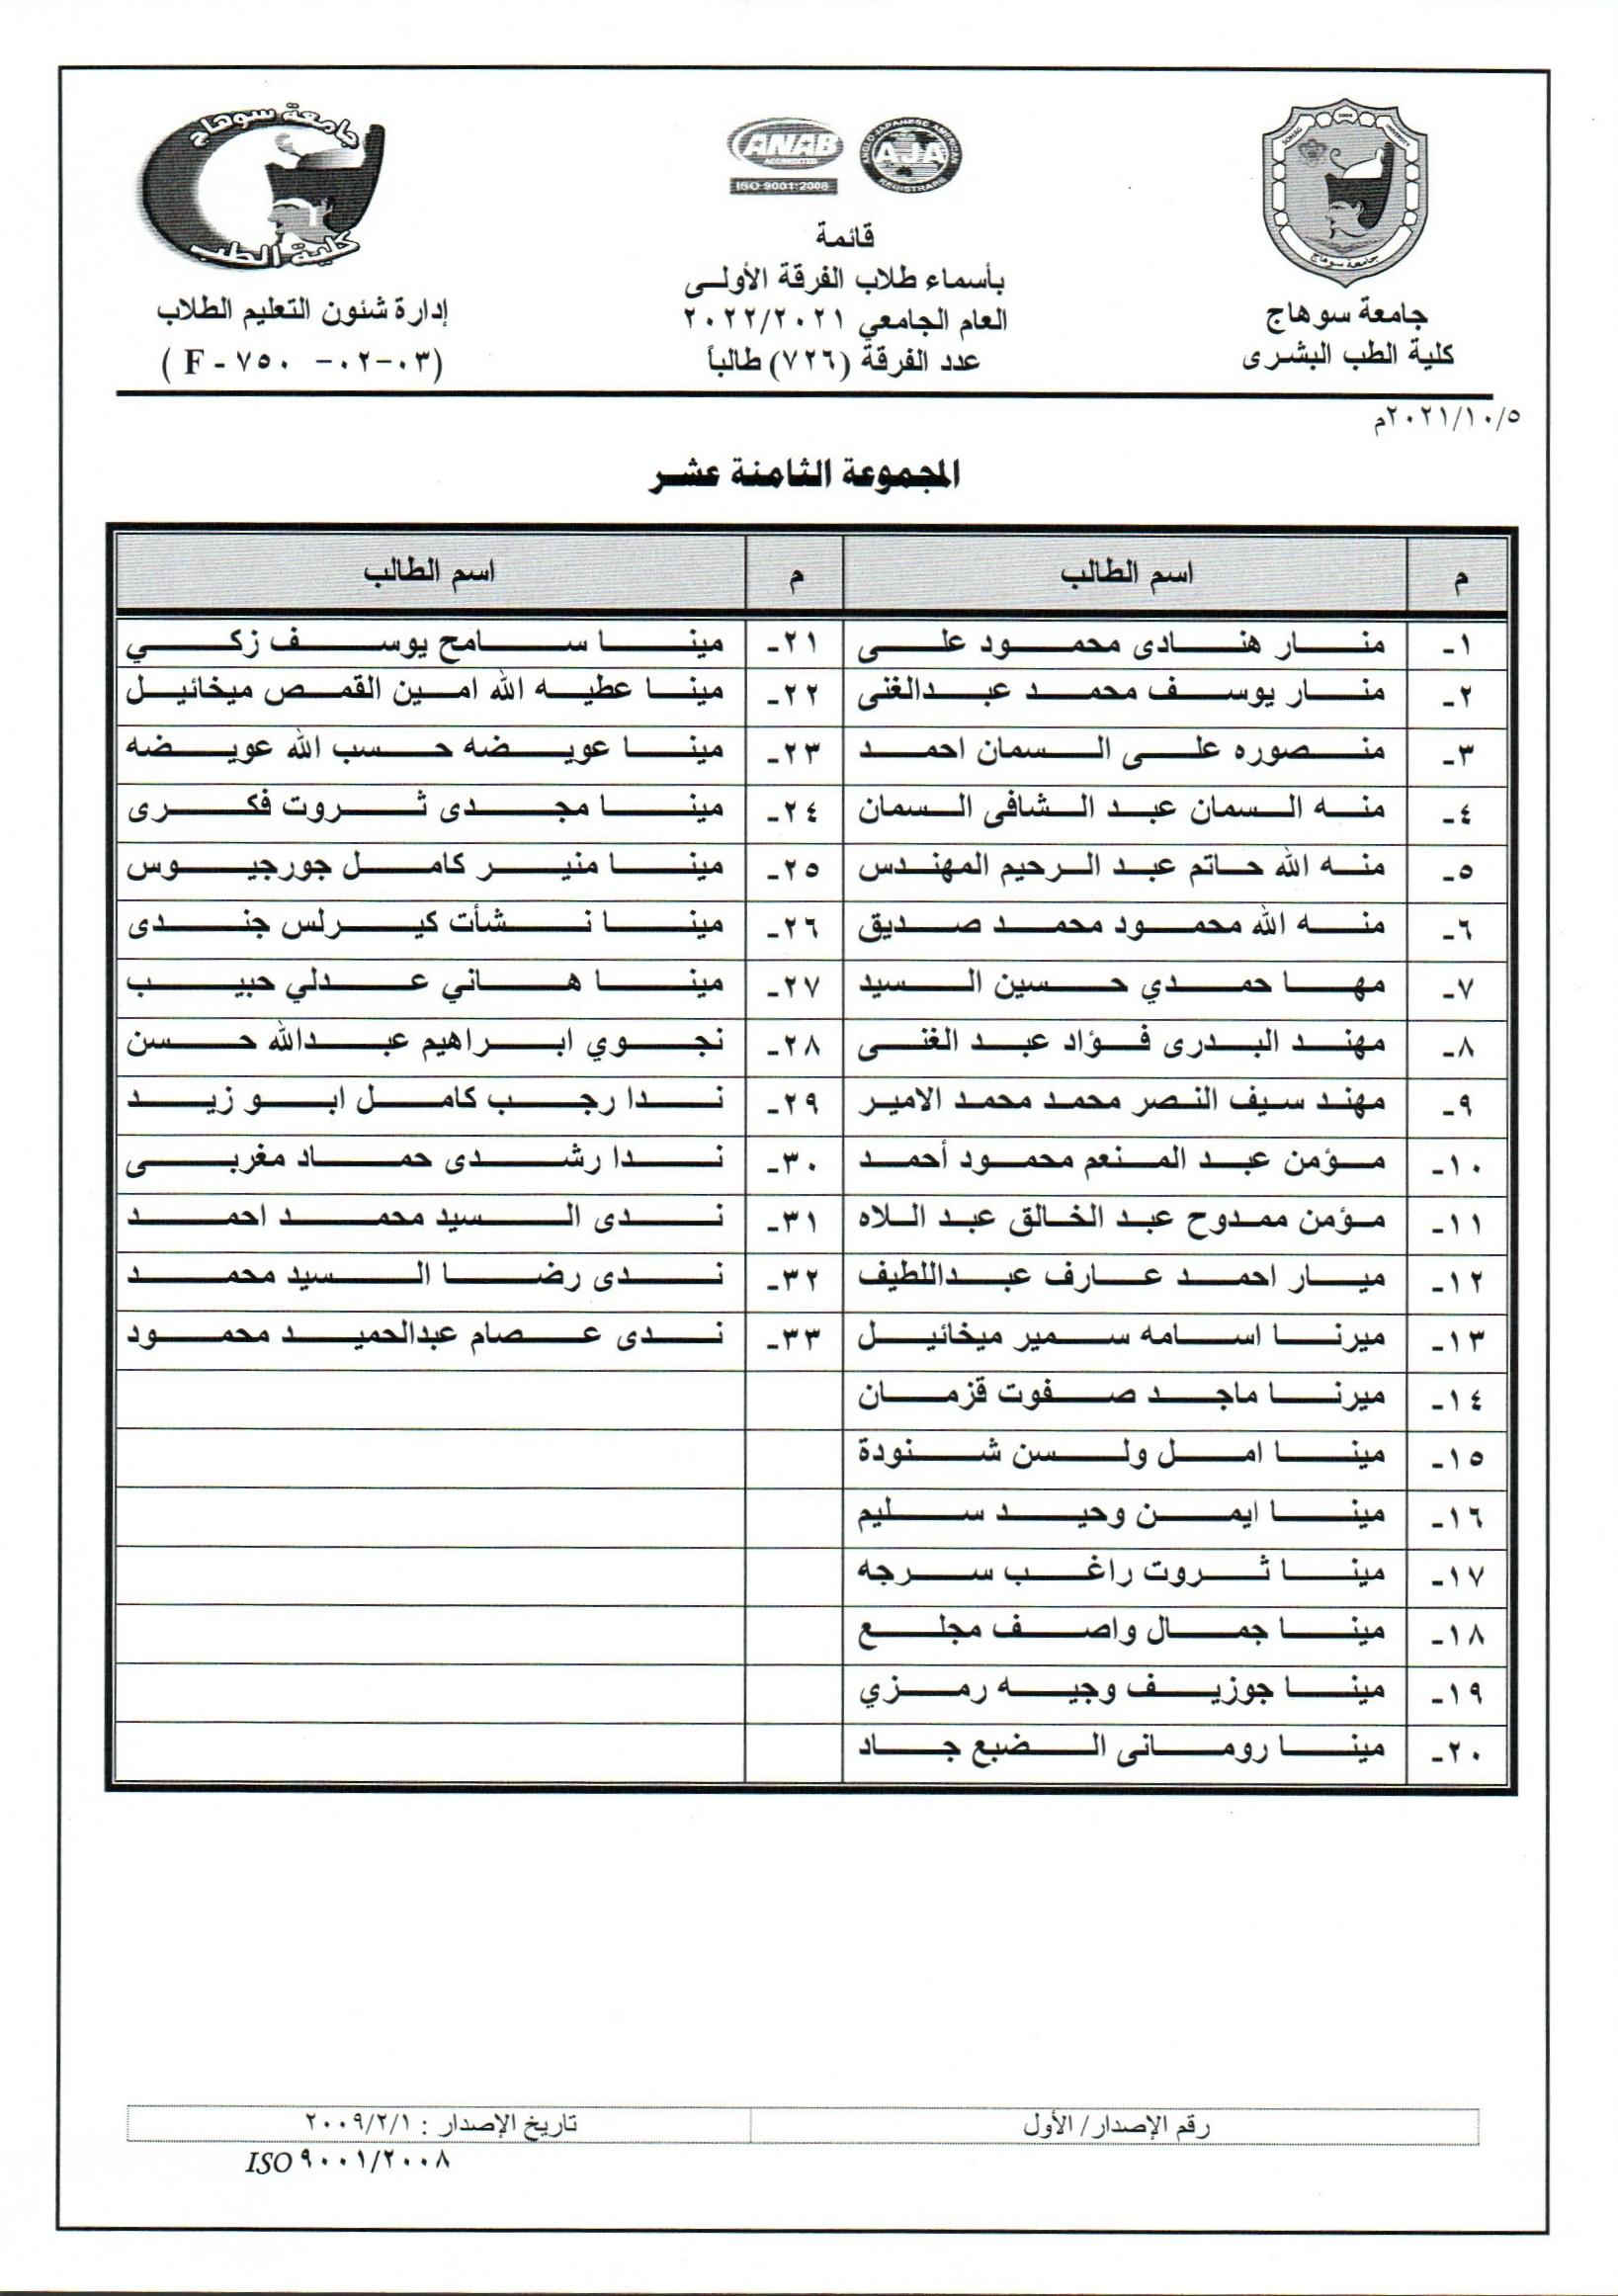 جامعة سوهاج
كلية الطب
ANAB
ACCREDITED
ISO 9001:2008
ANGLO JAPANESE AMERICAN
AJA
REGISTRARS
SOHAG UNIVERSITY
جامعة سوهاج
جامعة سوهاج
كلية الطب البشرى
قائمة
بأسماء طلاب الفرقة الأولـى
العام الجامعي ٢٠٢٢/٢٠٢١
عدد الفرقة (٧٢٦) طالباً
إدارة شئون التعليم الطلاب
(F - ٧٥٠ -٠٢-٠٣)
٢٠٢١/١٠/٥م
المجموعة الثامنة عشر
م اسم الطالب م اسم الطالب
١- منار هنادى محمود على ٢١- مينا سامح يوسف زكي
٢- منار يوسف محمد عبدالغنى ٢٢- مينا عطيه الله امين القمص ميخائيل
٣- منصوره على السمان احمد ٢٣- مينا عويضه حسب الله عويضه
٤- منه السمان عبد الشافى السمان ٢٤- مينا مجدى ثروت فكرى
٥- منه الله حاتم عبد الرحيم المهندس ٢٥- مينا منير كامل جورجيوس
٦- منه الله محمود محمد صديق ٢٦- مينا نشأت كيرلس جندى
٧- مها حمدي حسين السيد ٢٧- مينا هاني عدلي حبيب
٨- مهند البدرى فؤاد عبد الغنى ٢٨- نجوي ابراهيم عبدالله حسن
٩- مهند سيف النصر محمد محمد الامير ٢٩- ندا رجب كامل ابو زيد
١٠- مؤمن عبد المنعم محمود أحمد ٣٠- ندا رشدى حماد مغربى
١١- مؤمن ممدوح عبد الخالق عبد اللاه ٣١- ندى السيد محمد احمد
١٢- ميار احمد عارف عبداللطيف ٣٢- ندى رضا السيد محمد
١٣- ميرنا اسامه سمير ميخائيل ٣٣- ندى عصام عبدالحميد محمود
١٤- ميرنا ماجد صفوت قزمان
١٥- مينا امل ولسن شنودة
١٦- مينا ايمن وحيد سليم
١٧- مينا ثروت راغب سرجه
١٨- مينا جمال واصف مجلع
١٩- مينا جوزيف وجيه رمزي
٢٠- مينا رومانى الضبع جاد
رقم الإصدار/ الأول تاريخ الإصدار : ٢٠٠٩/٢/١
ISO ٩٠٠١/٢٠٠٨